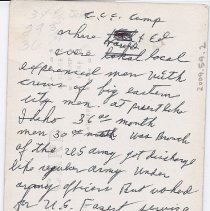 C.C.C. Camp
where & Ed
were local
experienced men with
crews of big eastern
city men. at priest lake
Idaho 36 00 month
men 30 00 month was Branch
of the US army got discharge
like regular army under
army officers But worked
for U.S. Forest service
2009.59.2